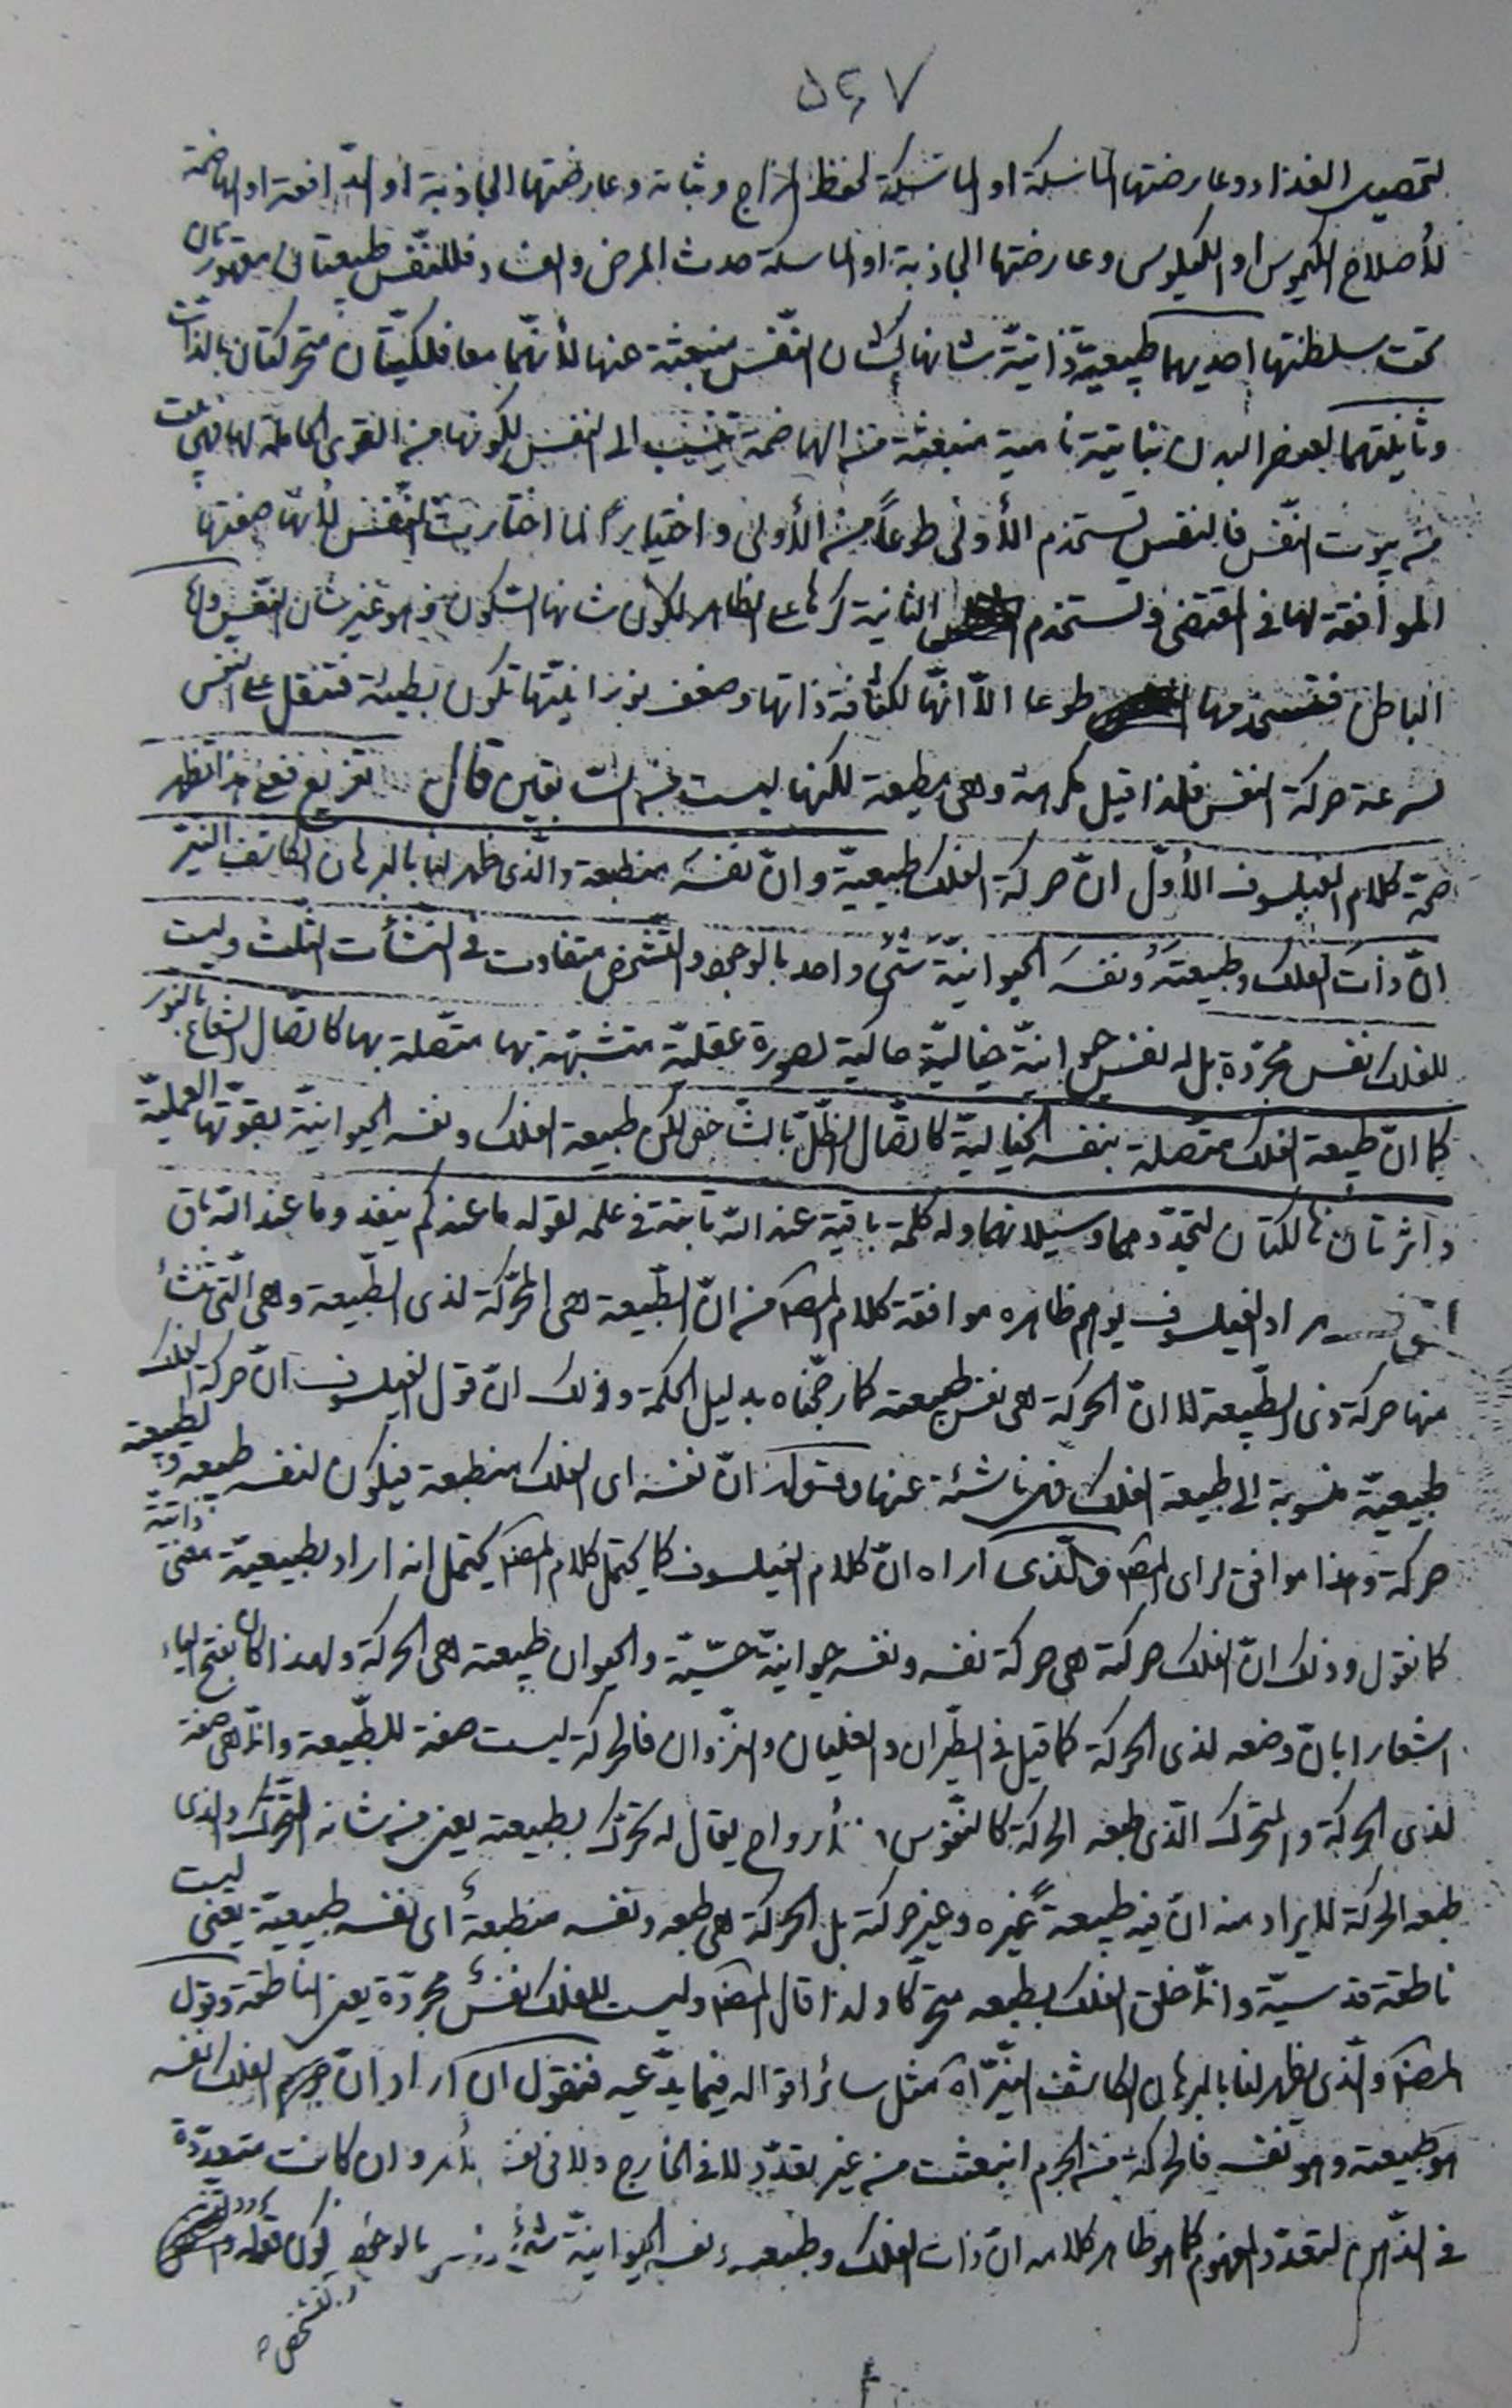 ٥٤٧
لتحصيل الغذاء وعارضتها الماسكة او الماسكة لحفظ المزاج وثباته وعارضتها الجاذبة او الدّافعة او الهاضمة
لأصلاح الكيموس او الكيلوس وعارضتها الجاذبة او الماسكة حدث المرض والفساد فللنّفس طبيعتان مقهورتان
تحت سلطنتها احديهما طبيعيّة ذاتيّة شانها كشان النّفس منبعثة عنها لأنّهما معا فلكيّتان متحركتان بالذات
وثانيتهما لعوض البدن نباتيّة نامية منبعثة من الهاضمة تنسب الى النفس لكونها من القوى الحاملة لها فهى بيت
من بيوت النّفس فالنفس تستخدم الأولى طوعاً من الأولى واختياراً لما اختارت النّفس لأنها صفتها
الموافقة لها فى المقتضى وتستخدم الثانية كرها على الظاهر لكون شانها السّكون وهو غير شان النّفس وامّا
الباطن فتستخدمها طوعا الاّ انّها لكثافة ذاتها وضعف نوريّتها تكون بطيئة فتثقل على النفس
لسرعة حركة النفس فلذا قيل مكرهة وهى مطيعة لكنها ليست من السّابقين قال تفريع فعلى هذا تظهر
صحّة كلام الفيلسوف الأوّل انّ حركة الفلك طبيعيّة وانّ نفسه منطبعة والّذى ظهر لنا بالبرهان الكاشف النيّر
انّ ذات الفلك وطبيعته ونفسه الحيوانيّة شئ واحد بالوجود والتّشخّص متفاوت فى النشأت الثلث وليست
للفلك نفس مجرّدة بل له نفس حيوانيّة خياليّة حاكية لصورة عقليّة متشبّهة بها متّصلة بها كاتصال الشعاع بالنور
كما انّ طبيعة الفلك متّصلة بنفسه الخياليّة كاتّصال الظّلّ بالشّاخص لكن طبيعة الفلك ونفسه الحيوانيّة بقوّتها العمليّة
داثرتان هالكتان لتجدّدهما وسيلانهما وله كلمة باقية عند اللّه ثابتة فى علمه لقوله ما عندكم ينفد وما عند اللّه باق
مراد الفيلسوف يوهم ظاهره موافقة كلام المصنّف من انّ الطّبيعة هى المحرّكة لذى الطّبيعة وهى الّتى تنشأ
منها حركة ذى الطّبيعة لا انّ الحركة هى نفس طبيعته كما رجّحناه بدليل الحكمة وذلك انّ قول الفيلسوف انّ حركة الفلك
طبيعيّة منسوبة الى طبيعة الفلك فهى ناشئة عنها وقوله انّ نفسه اى الفلك منطبعة فيكون لنفسه طبيعة ولطبيعته
حركة وهذا موافق لراى المصنف والّذى اراه انّ كلام الفيلسوف كما يحتمل كلام المصنف يحتمل انه اراد بطبيعيّة معنى ذاتيّة
كما نقول وذلك انّ الفلك حركته هى حركة نفسه ونفسه حيوانيّة حسّيّة والحيوان طبيعته هى الحركة ولهذا كان بفتح الياء
اشعارا بانّ وضعه لذى الحركة كما قيل فى الطّيران والغليان والنّزوان فالحركة ليست صفة للطّبيعة وانّما هى صفة
لذى الحركة والمتحرك الّذى طبعه الحركة كالنّفوس والأرواح يقال له تحرّك بطبيعته يعنى من شانه التّحرّك والذى
طبعه الحركة لا يراد منه انّ فيه طبيعةً غيره وغير حركته بل الحركة هى طبعه ونفسه منطبعة اى نفسه طبيعيّة يعنى ليست
ناطقة قدسيّة وانّما خلق الفلك بطبعه متحرّكا ولذا قال المصنف وليست للفلك نفس مجرّدة يعنى الناطقة وقول
المصنف والّذى يظهر لنا بالبرهان الكاشف النيّر اه كمثل سائر اقواله فيما يدّعيه فنقول ان اراد انّ جرم الفلك نفسه
هو طبيعته وهو نفسه فالحركة من الجرم انبعثت من غير تعدّد لا فى الخارج ولا فى نفس الأمر وان كانت متعدّدة
فى الذّهن لتعدّد المفهوم كما هو ظاهر كلامه انّ ذات الفلك وطبيعته ونفسه الحيوانيّة شئ بالوجود لكن قوله
والتشخص